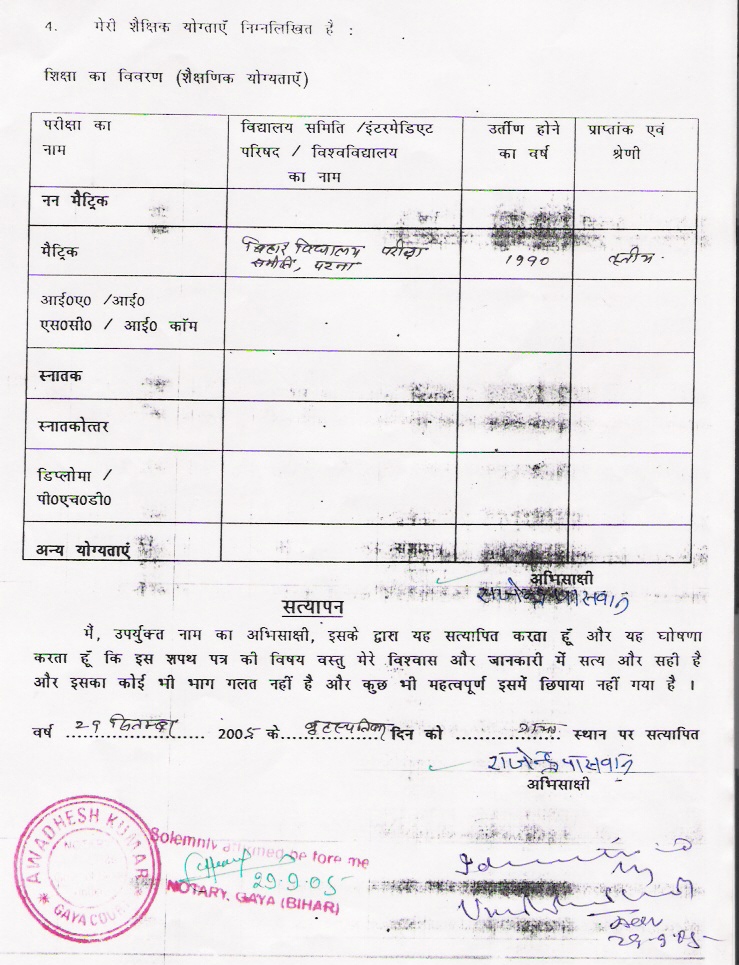 4. मेरी शैक्षिक योग्ताएँ निम्नलिखित है :
शिक्षा का विवरण (शैक्षणिक योग्यताएँ)
परीक्षा का नाम
विद्यालय समिति /इंटरमेडिएट परिषद / विश्वविद्यालय का नाम
उर्तीण होने का वर्ष
प्राप्तांक एवं श्रेणी
नन मैट्रिक
मैट्रिक
बिहार विद्यालय परीक्षा
समिति, पटना
1990
आई०ए० /आई०
एस०सी० / आई० कॉम
स्नातक
स्नातकोत्तर
डिप्लोमा /
पी०एच०डी०
अन्य योग्यताएं
अभिसाक्षी
राजेन्द्र पासवान
सत्यापन
मैं, उपर्युक्त नाम का अभिसाक्षी, इसके द्वारा यह सत्यापित करता हूँ और यह घोषणा
करता हूँ कि इस शपथ पत्र की विषय वस्तु मेरे विश्वास और जानकारी में सत्य और सही है
और इसका कोई भी भाग गलत नहीं है और कुछ भी महत्वपूर्ण इसमें छिपाया नहीं गया है ।
वर्ष 29 सितम्बर 2005 के दिन को स्थान पर सत्यापित
राजेन्द्र पासवान
अभिसाक्षी
AWADHESH KUMAR
GAYA COURT
Solemnly affirmed before me
29.9.05
NOTARY, GAYA (BIHAR)
29-9-05